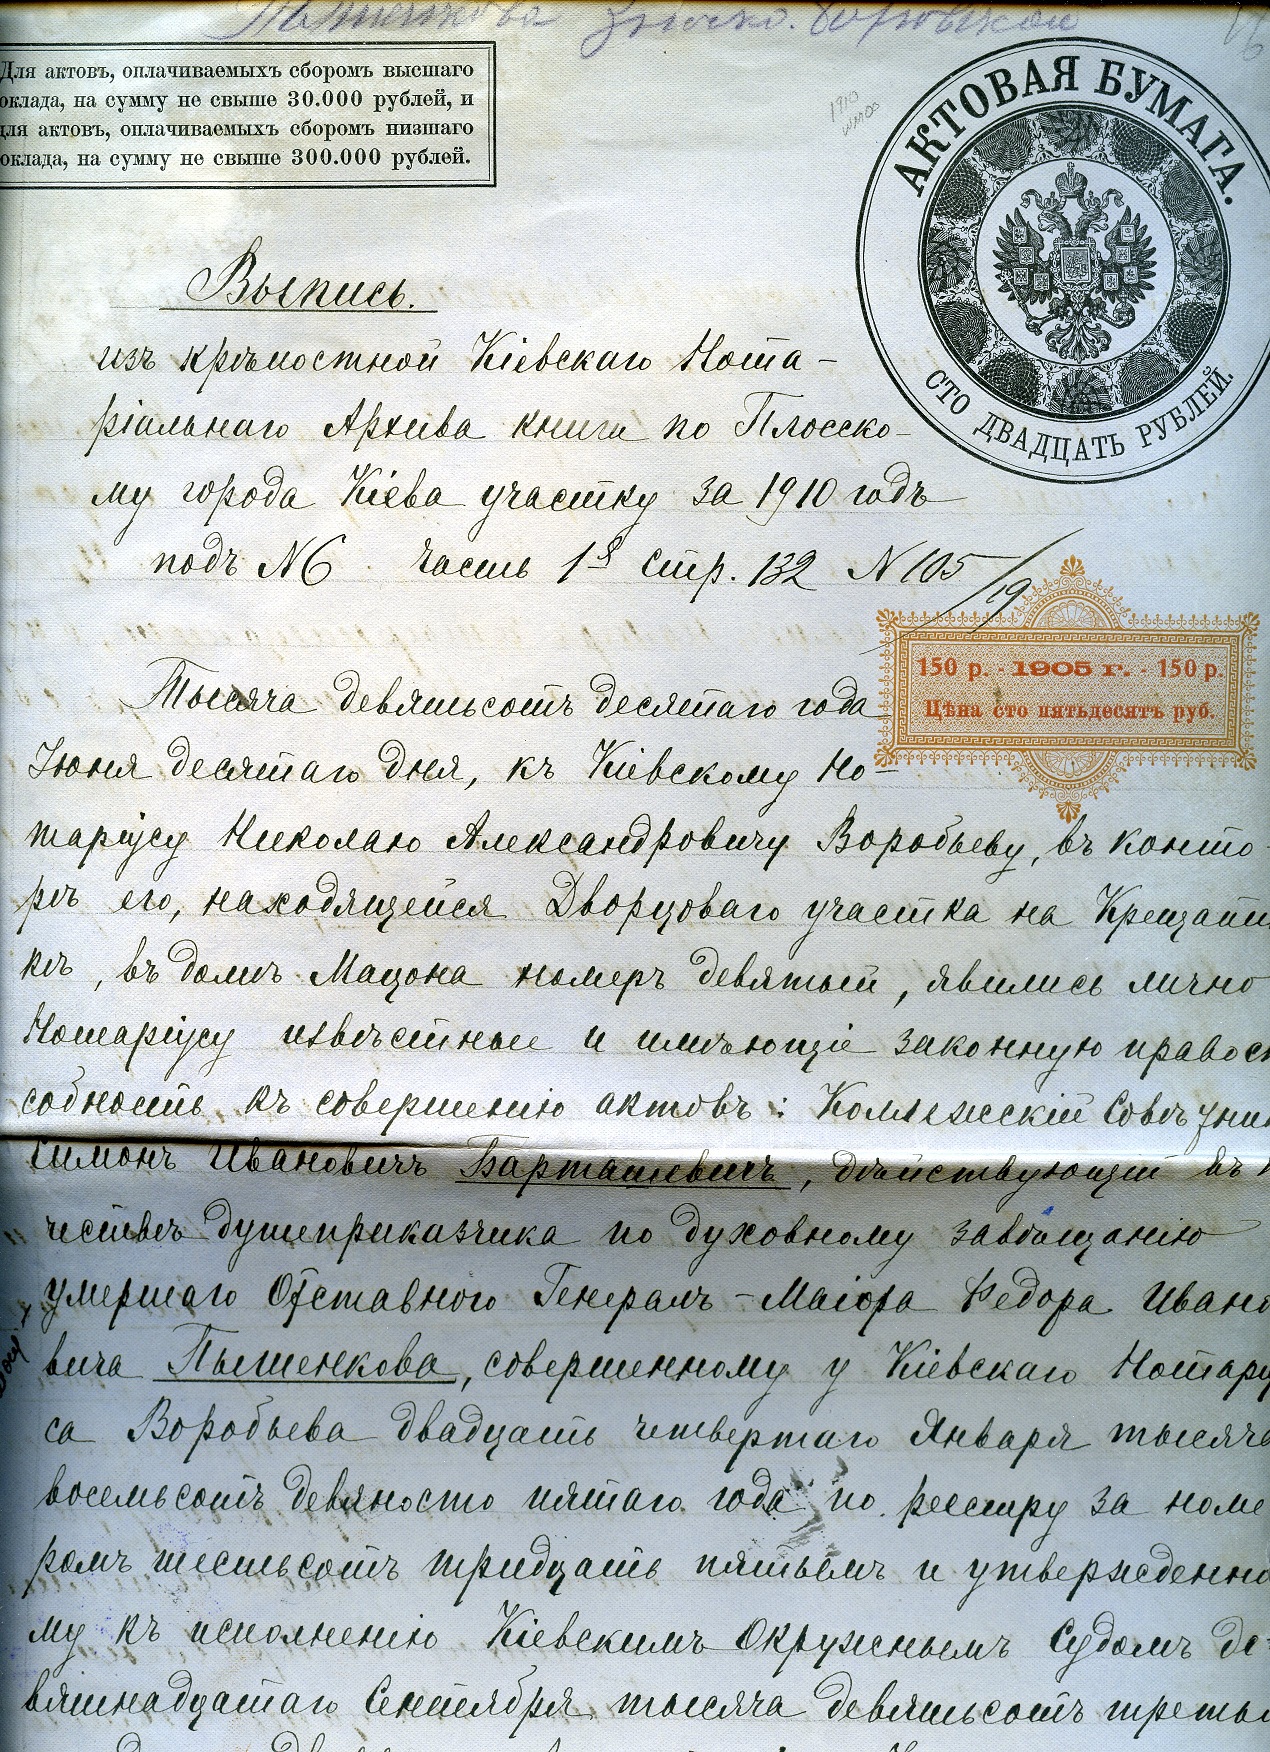 Для актовъ, оплачиваемыхъ сборомъ высшаго
оклада, на сумму не свыше 30.000 рублей, и
для актовъ, оплачиваемыхъ сборомъ низшаго
оклада, на сумму не свыше 300.000 рублей.
АКТОВАЯ БУМАГА.
СТО ДВАДЦАТЬ РУБЛЕЙ.
1910
Выпись.
изъ крѣпостной Кіевскаго Нота-
ріальнаго Архива книги по Плосско-
му города Кіева участку за 1910 годъ
подъ N6 часть 1я стр. 132 N 105/19
150 р. - 1905 г. - 150 р.
Цѣна сто пятьдесятъ руб.
Тысяча девятьсотъ десятаго года
Іюня десятаго дня, къ Кіевскому Но-
таріусу Николаю Александровичу Воробьеву, въ конто-
рѣ его, находящейся Дворцоваго участка на Крещати
кѣ, въ домѣ Мацона номеръ девятый, явились лично
Нотаріусу извѣстные и имѣющіе законную правосп
собность къ совершенію актовъ: Коллежскій Совѣтник
Симонъ Ивановичъ Барташевичъ, дѣйствующій въ к
чествѣ душеприказчика по духовному завѣщанію
умершаго Отставного Генералъ-Маіора Федора Ивано
вича Пышенкова, совершенному у Кіевскаго Нотаріу
са Воробьева двадцать четвертаго Января тысяча
восемьсотъ девяносто пятаго года по реестру за номе
ромъ шестьсотъ тридцать пятымъ и утвержденно
му къ исполненію Кіевскимъ Окружнымъ Судомъ де-
вятнадцатаго Сентября тысяча девятьсотъ третья